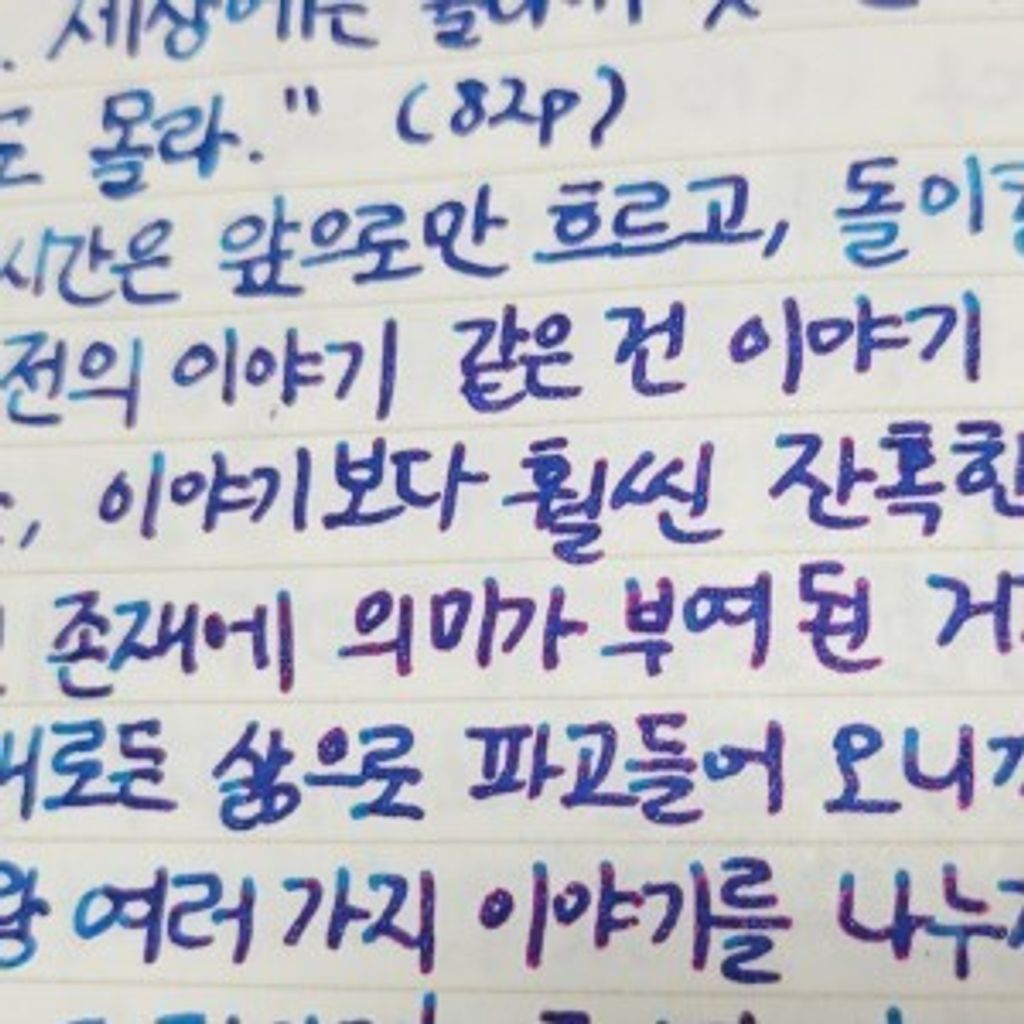 . 세상에는
도 몰라." (82p)
시간은 앞으로만 흐르고, 돌이킬
전의 이야기 같은 건 이야기
, 이야기보다 훨씬 잔혹한
존재에 의미가 부여된
대로든 삶으로 파고들어 오니까
왕 여러 가지 이야기를 나누